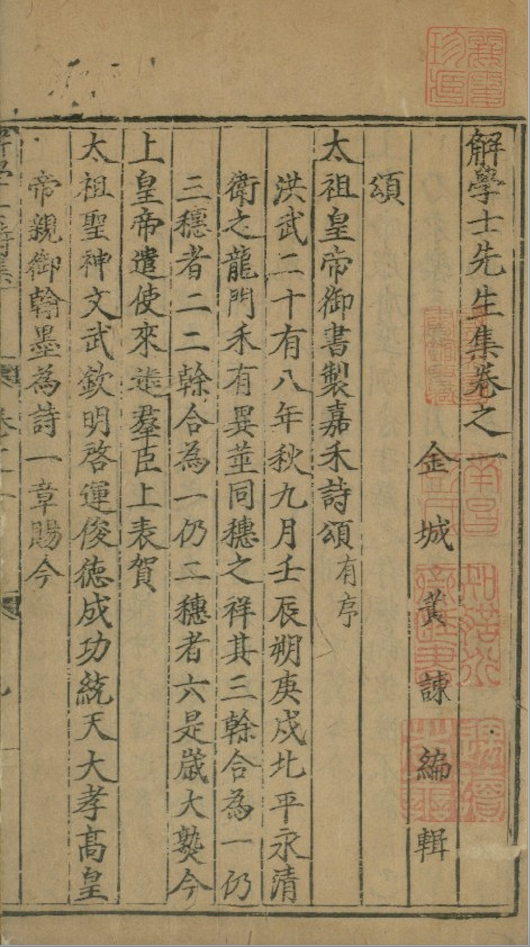 解學士先生集卷之一
金城黃諫編輯
頌
太祖皇帝御書製嘉禾詩頌有序
洪武二十有八年秋九月壬辰朔庚戌北平永清
衛之龍門禾有異莖同穗之祥其三榦合為一仍
三穗者二二榦合為一仍二穗者六是歲大𤍨今
上皇帝遣使來進羣臣上表賀
太祖聖神文武欽明啓運俊德成功統天大孝高皇
帝親御翰墨為詩一章賜今